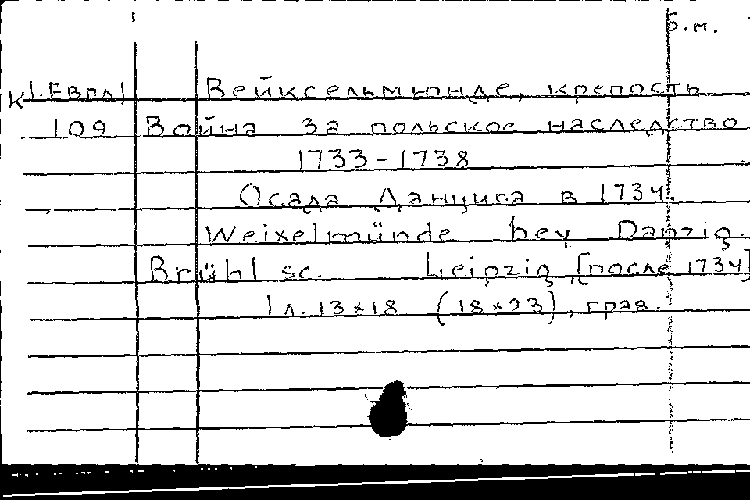 б.м.
К 1.Евпл1 Вейксельмюнде, крепость
109 Война за польское наследство
1733-1738
Осада Данцига в 1734.
Weixelmünde bey Danzig.
Brühl sc. Leipzig, [после 1734]
1 л. 13×18 (18×23), грав.